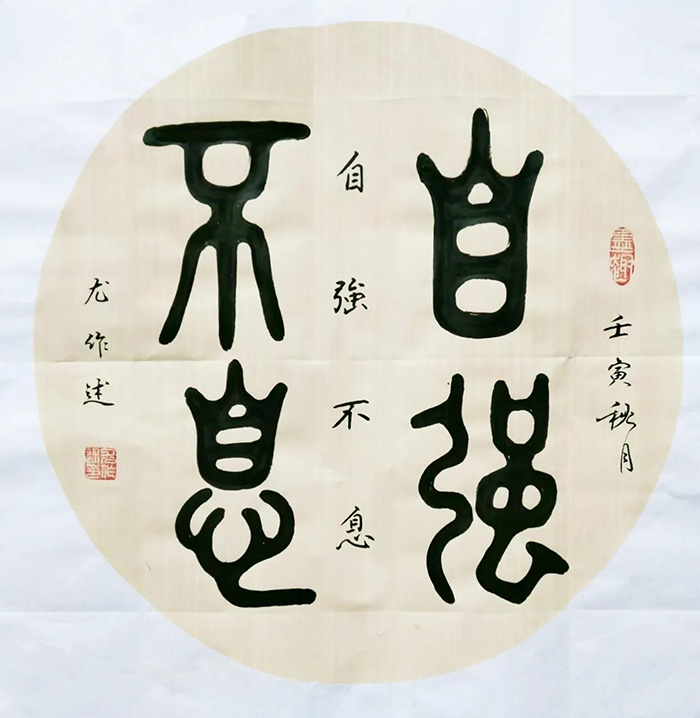 壬寅秋月
自强
不息
自強不息
尤作述